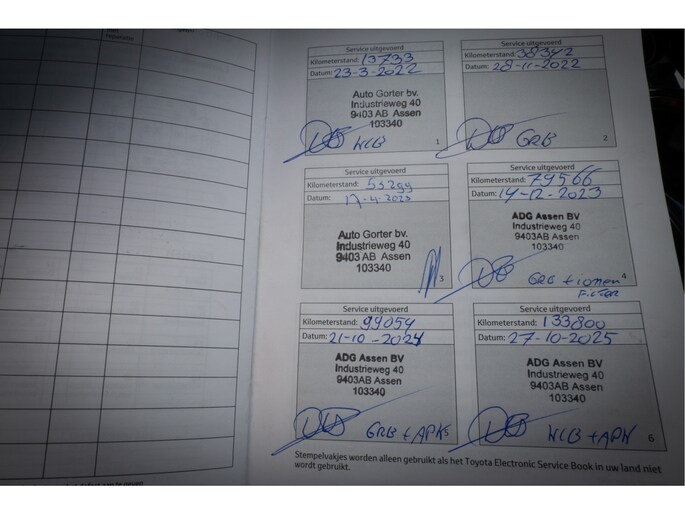 reparatie
Service uitgevoerd
Kilometerstand: 13733
Datum: 23-3-2022
Auto Gorter bv.
Industrieweg 40
9403 AB Assen
103340
KLB
1
Service uitgevoerd
Kilometerstand: 38342
Datum: 28-11-2022
GRB
2
Service uitgevoerd
Kilometerstand: 55299
Datum:
Auto Gorter bv.
Industrieweg 40
9403 AB Assen
103340
3
Service uitgevoerd
Kilometerstand: 79566
Datum: 14-12-2023
ADG Assen BV
Industrieweg 40
9403AB Assen
103340
GRB +
Filter
4
Service uitgevoerd
Kilometerstand: 99054
Datum: 21-10-2024
ADG Assen BV
Industrieweg 40
9403AB Assen
103340
GRB + APK
5
Service uitgevoerd
Kilometerstand: 133800
Datum: 27-10-2025
ADG Assen BV
Industrieweg 40
9403AB Assen
103340
KLB + APK
6
Stempelvakjes worden alleen gebruikt als het Toyota Electronic Service Book in uw land niet
wordt gebruikt.